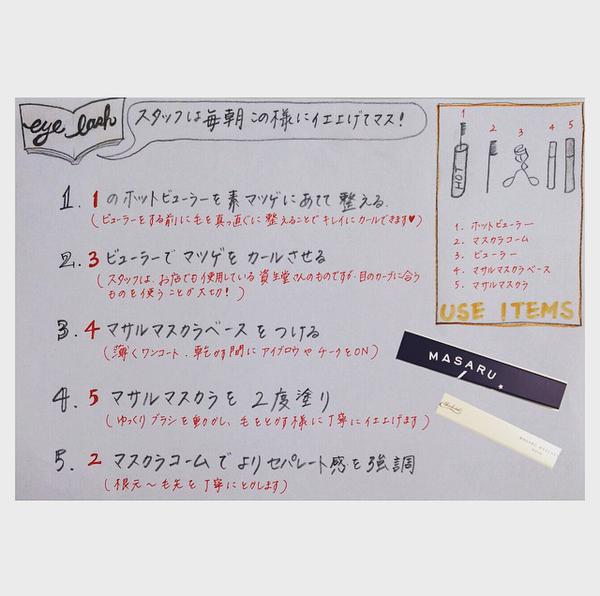 eye lash
スタッフは毎朝この様に仕上げてマス!
1. 1のホットビューラーを素マツゲにあて整える.
(ビューラーをする前に毛を真っ直ぐに整えることでキレイにカールできます♥)
2. 3ビューラーでマツゲをカールさせる
(スタッフは、お店でも使用している資生堂さんのものですが、目のカーブに合う
ものを使うことが大切!)
3. 4マサルマスカラベースをつける
(薄くワンコート. 乾かす間にアイブロウやチークをON)
4. 5マサルマスカラを2度塗り
(ゆっくりブラシを動かし、毛をとかす様に丁寧に仕上げます)
5. 2マスカラコームでよりセパレート感を強調
(根元〜毛先を丁寧にとかします)
1 2 3 4 5
HOT
1. ホットビューラー
2. マスカラコーム
3. ビューラー
4. マサルマスカラベース
5. マサルマスカラ
USE ITEMS
MASARU